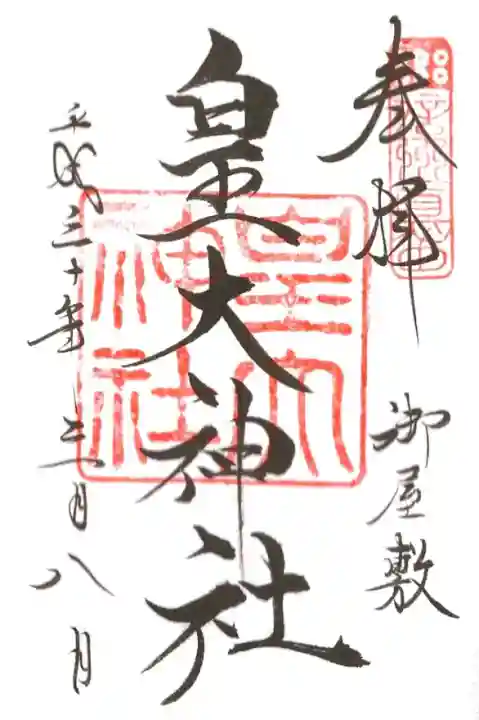 奉拝
御屋敷
皇大神社
皇大神社
平成三十年三月八日